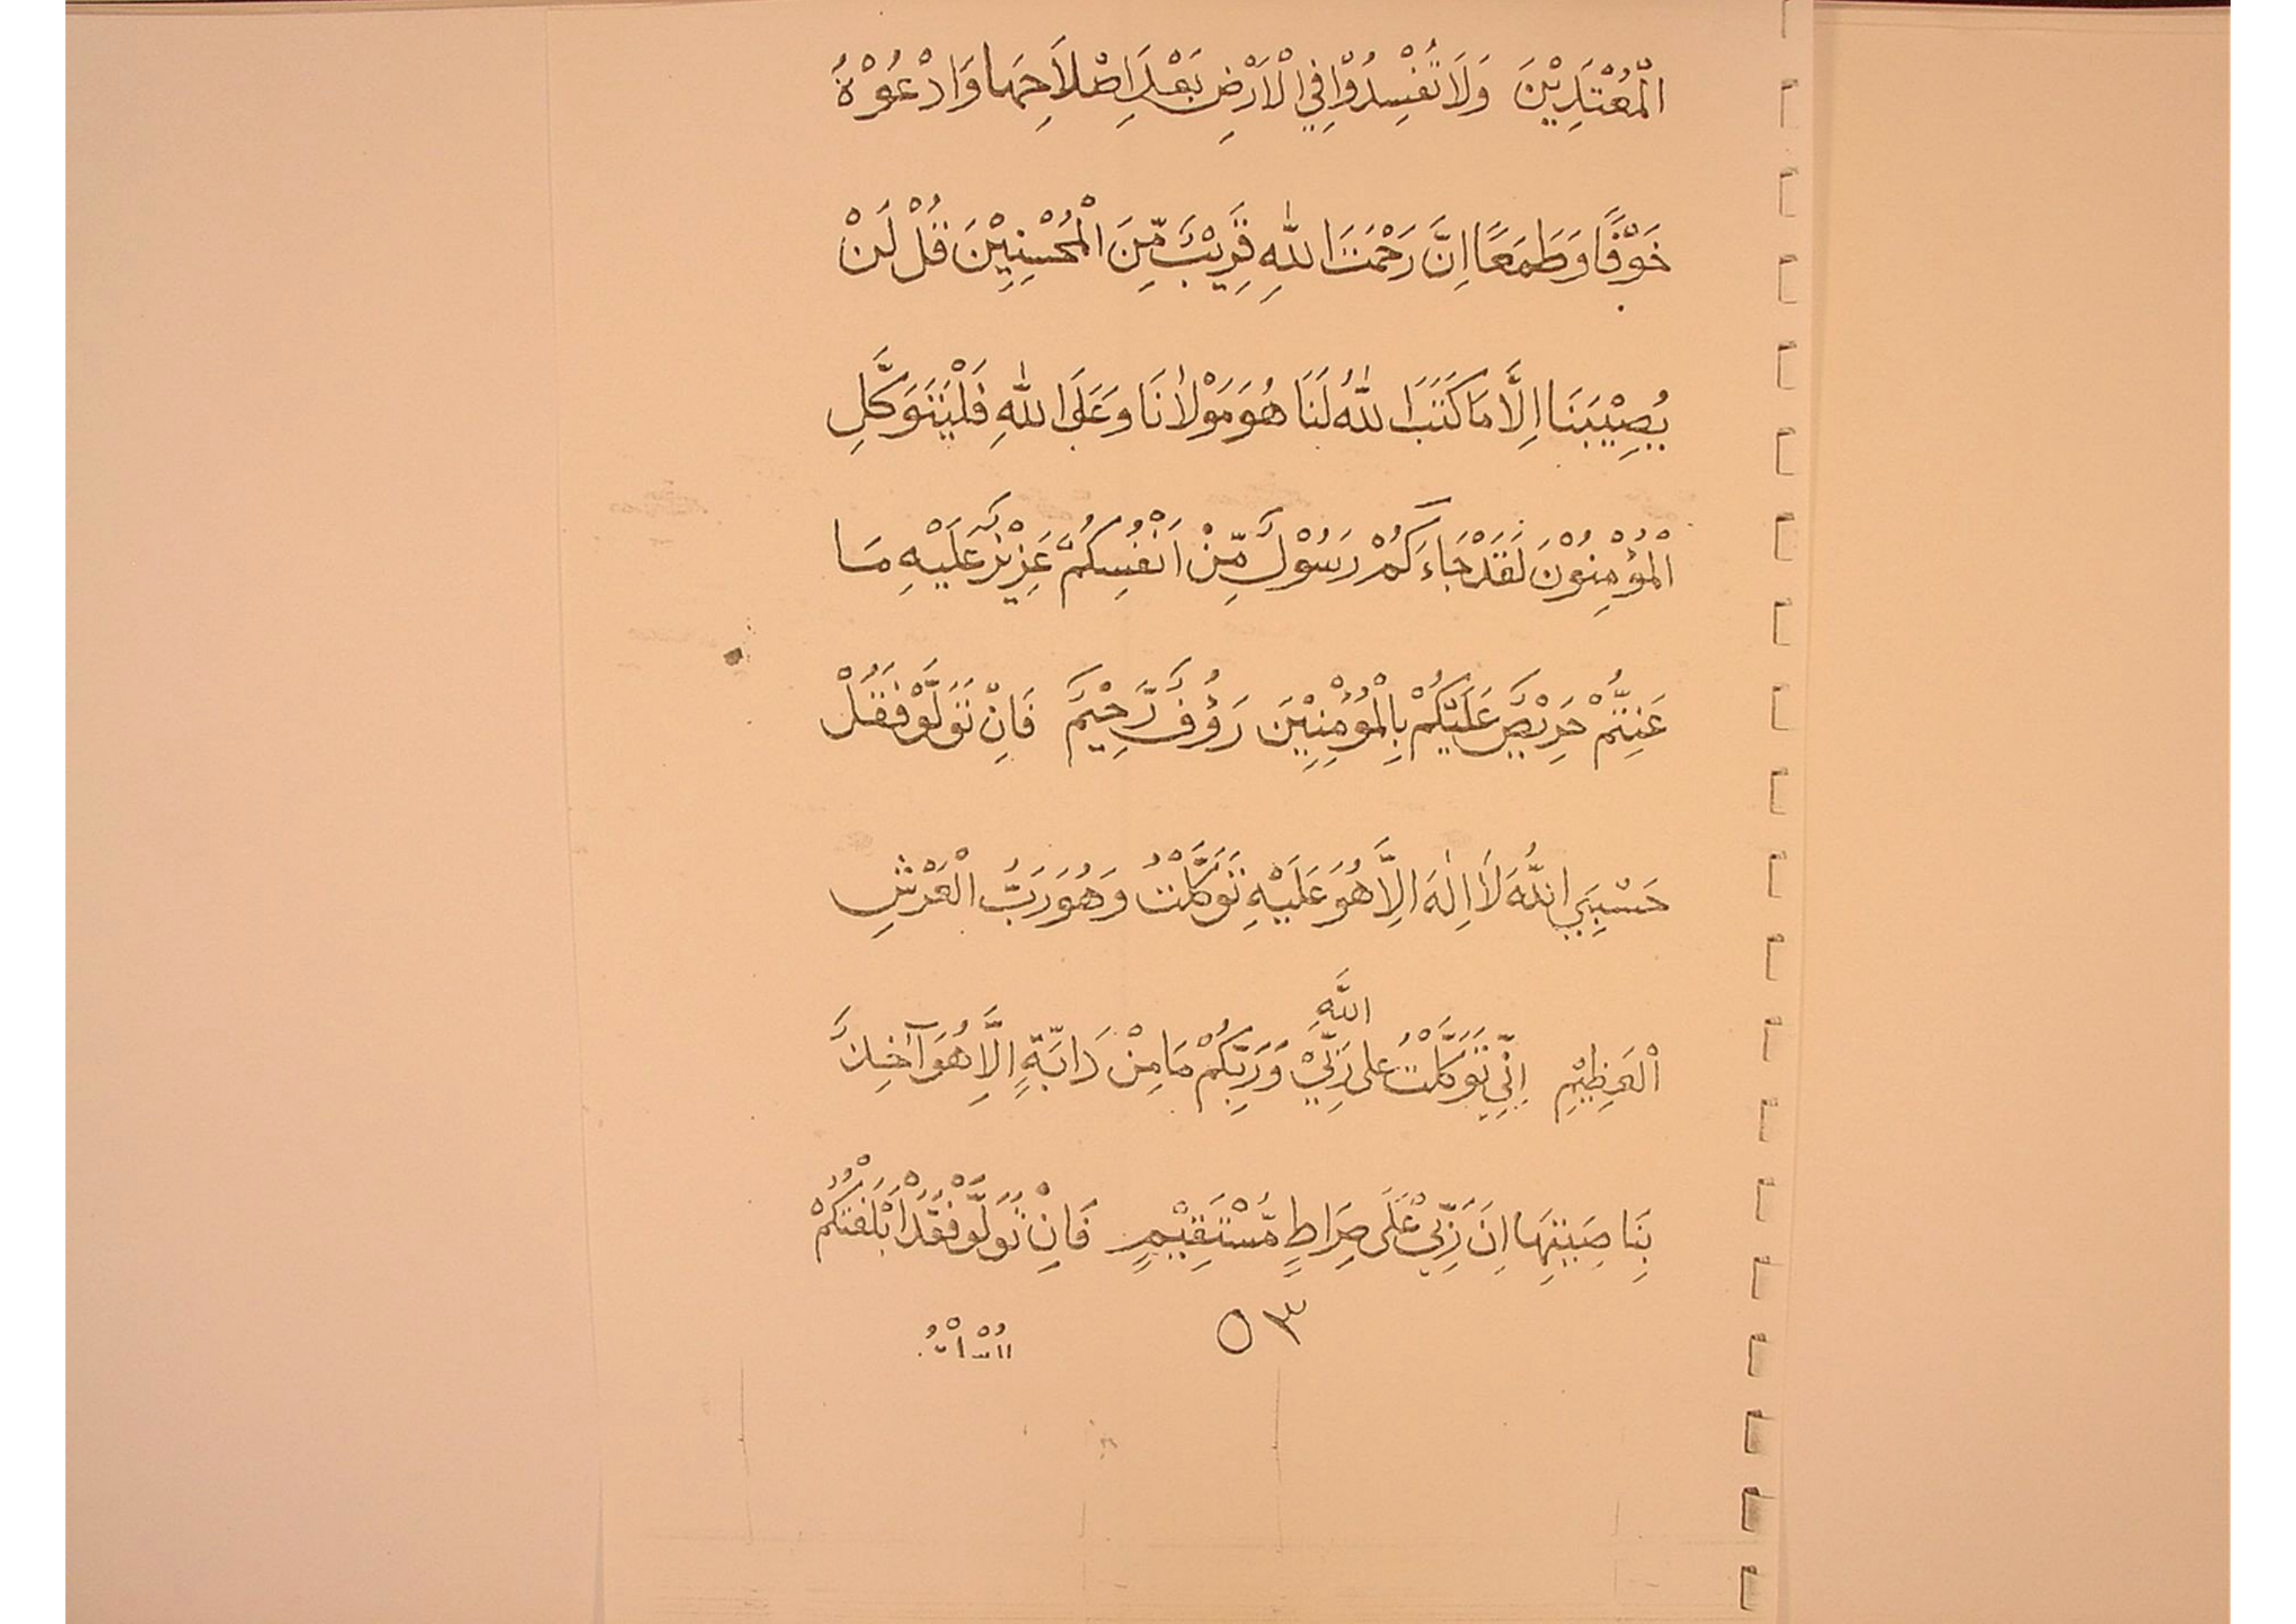 الْمُعْتَدِيْنَ وَلَا تُفْسِدُوْا فِي الْاَرْضِ بَعْدَ اِصْلَاحِهَا وَادْعُوْهُ
خَوْفًا وَطَمَعًا اِنَّ رَحْمَتَ اللهِ قَرِيْبٌ مِّنَ الْمُحْسِنِيْنَ قُلْ لَنْ
يُصِيْبَنَا اِلَّا مَا كَتَبَ اللهُ لَنَا هُوَ مَوْلَانَا وَعَلَى اللهِ فَلْيَتَوَكَّلِ
الْمُؤْمِنُوْنَ لَقَدْ جَاءَكُمْ رَسُوْلٌ مِّنْ اَنْفُسِكُمْ عَزِيْزٌ عَلَيْهِ مَا
عَنِتُّمْ حَرِيْصٌ عَلَيْكُمْ بِالْمُؤْمِنِيْنَ رَؤُفٌ رَّحِيْمٌ فَاِنْ تَوَلَّوْ فَقُلْ
حَسْبِيَ اللّٰهُ لَا اِلٰهَ اِلَّا هُوَ عَلَيْهِ تَوَكَّلْتُ وَهُوَ رَبُّ الْعَرْشِ
اللَّهِ
الْعَظِيْمِ اِنِّيْ تَوَكَّلْتُ عَلى رَبِّيْ وَرَبِّكُمْ مَا مِنْ دَابَّةٍ اِلَّا هُوَ آخِذٌ
بِنَاصِيَتِهَا اِنَ رَبِّيْ عَلَى صِرَاطٍ مُّسْتَقِيْمٍ فَاِنْ تَوَلَّوْ فَقَدْ اَبْلَغْتُكُمْ
٥٣